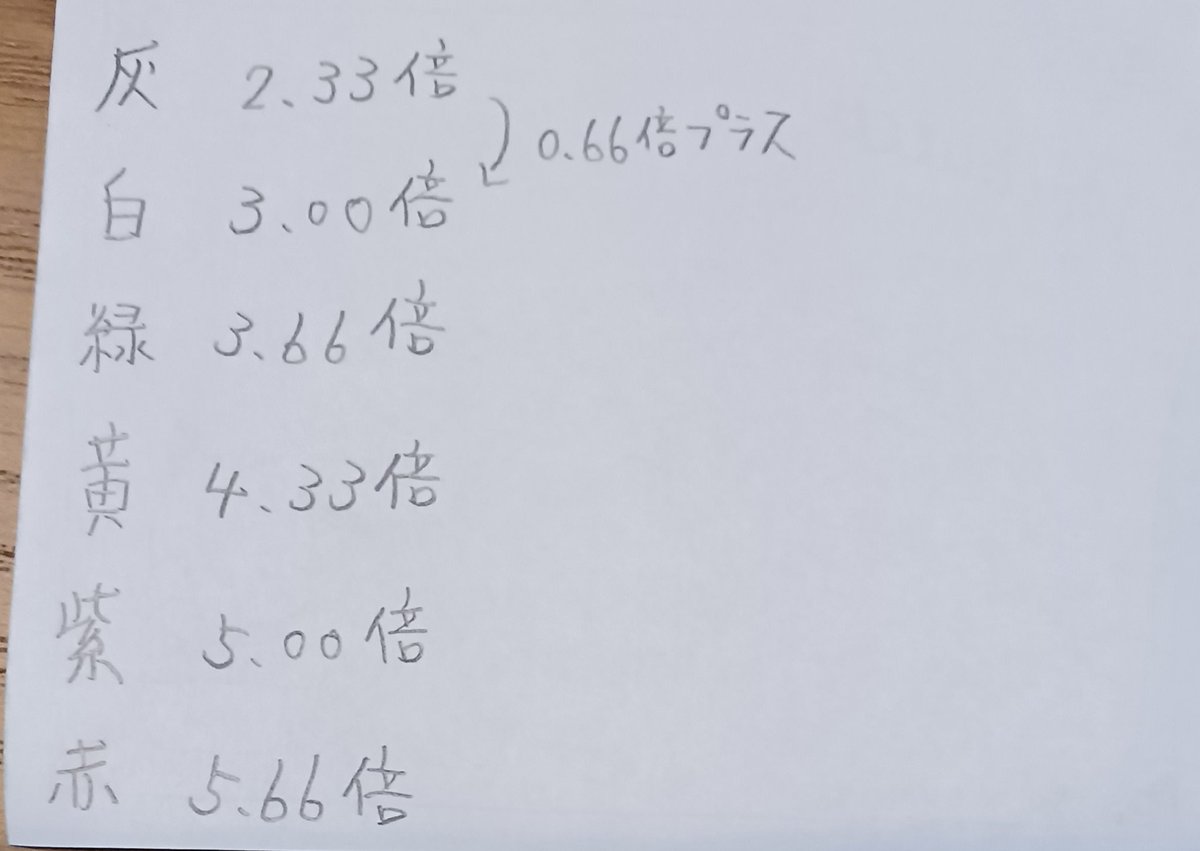 灰 2.33倍
0.66倍プラス
白 3.00倍
緑 3.66倍
黄 4.33倍
紫 5.00倍
赤 5.66倍